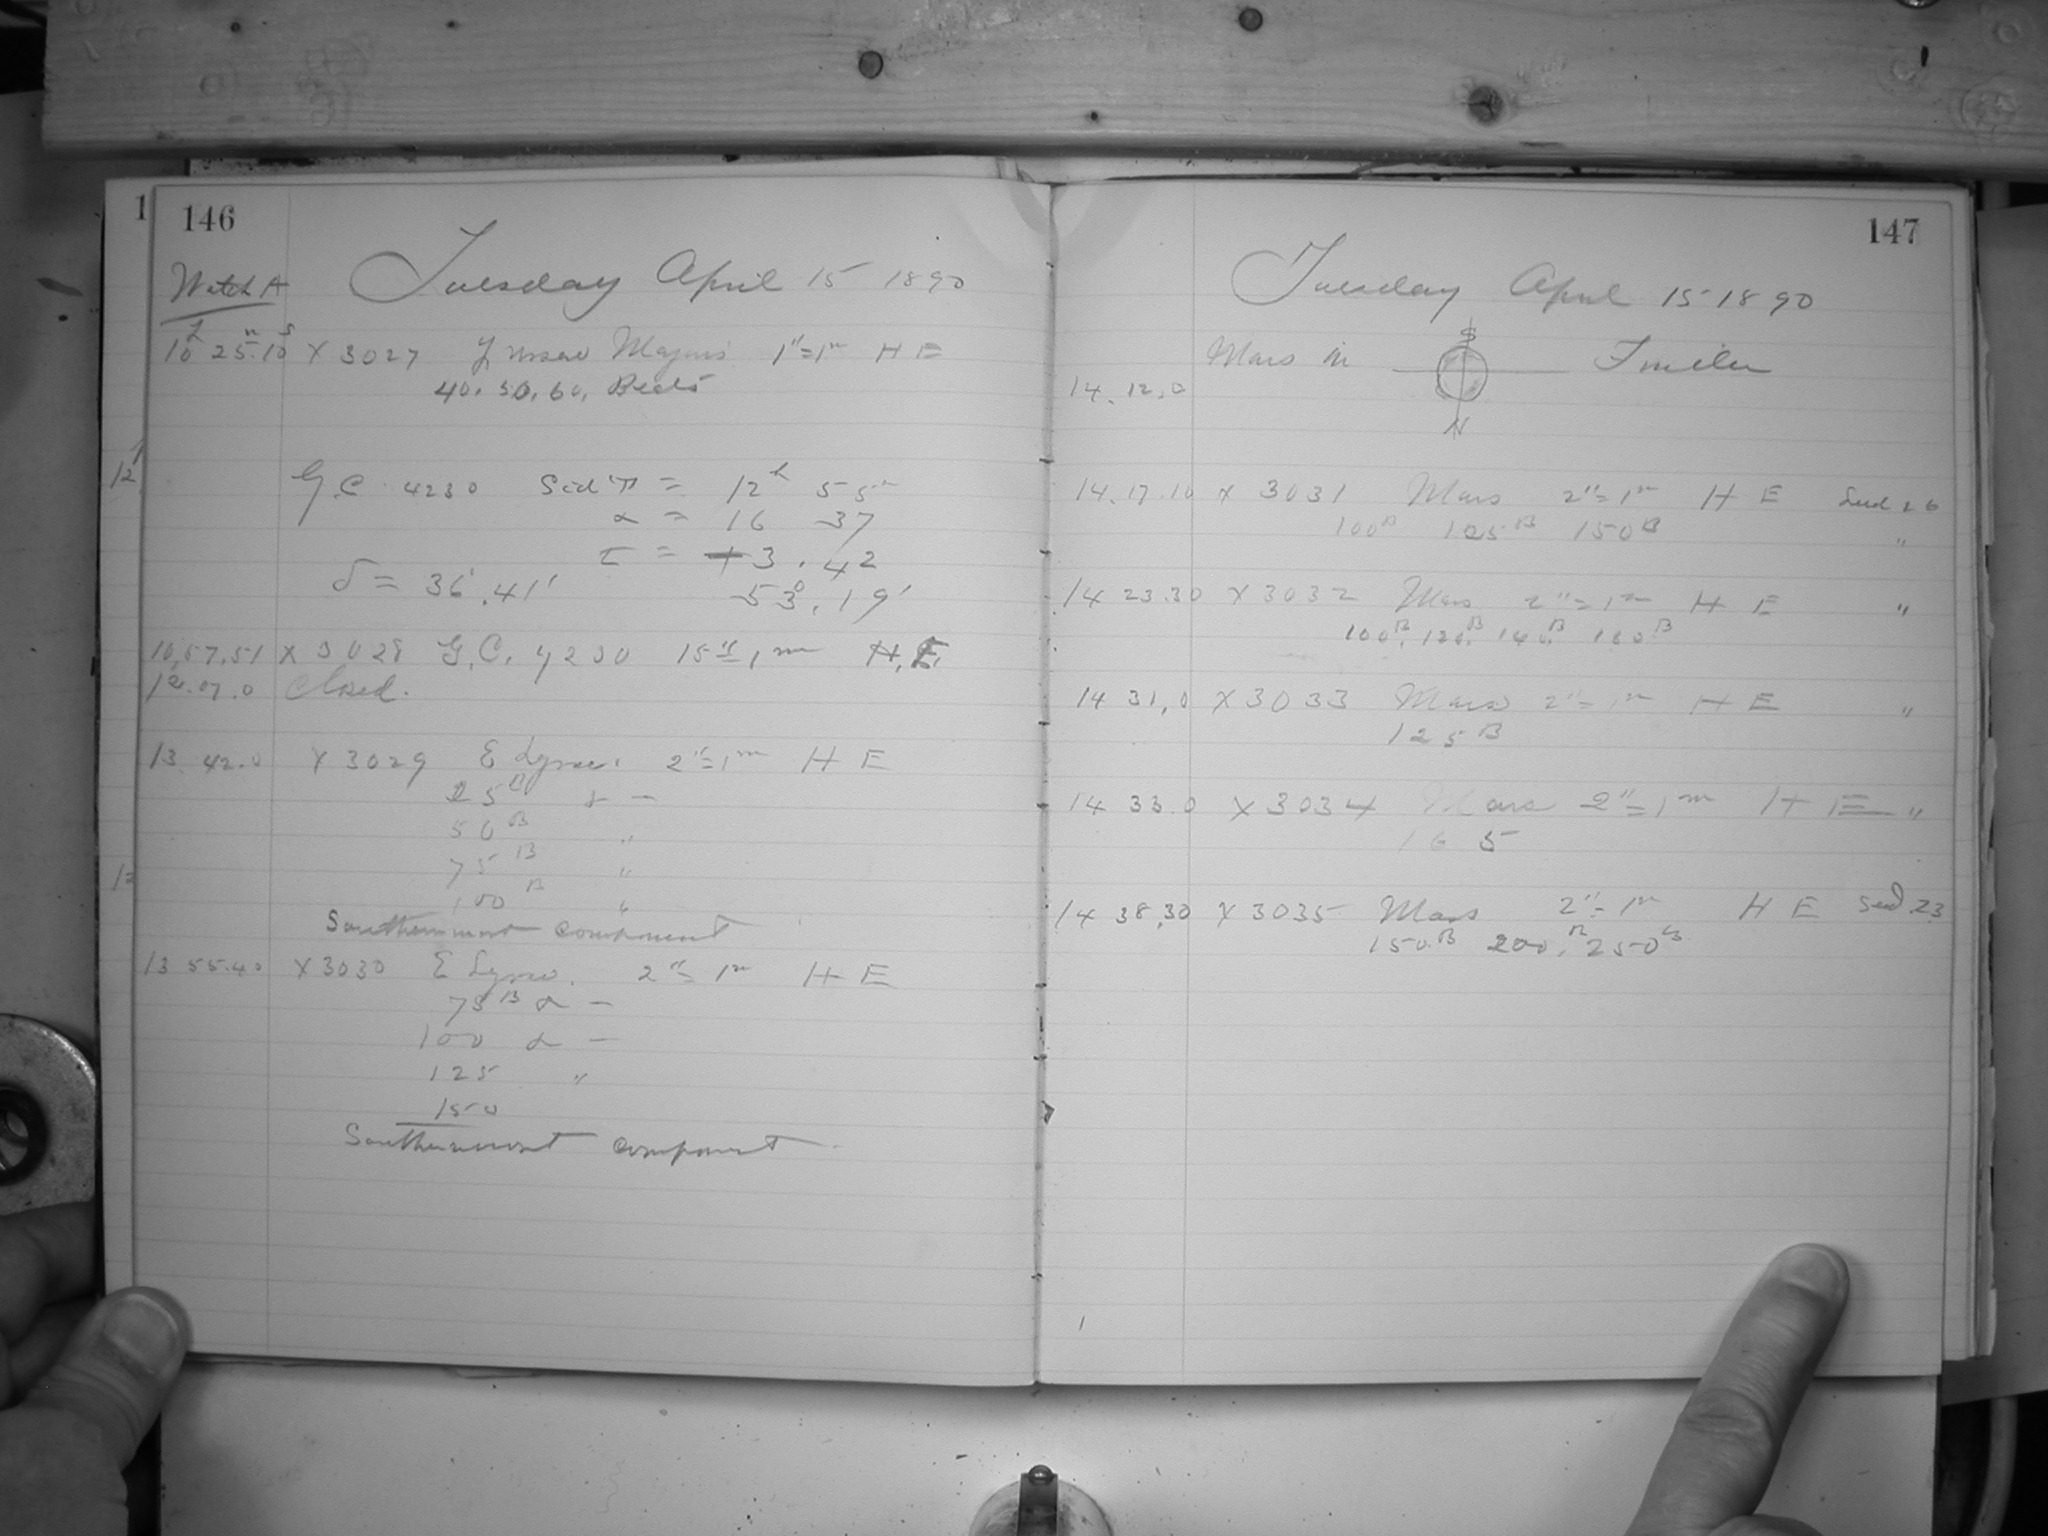 1
146
Watch A
Tuesday April 15 1890
10h 25m.10s X 3027 Ursae Majoris 1"=1m H E
40. 50. 60. Beats
12
G.C. 4230 Sid T = 12h 55m
α = 16 37
τ = +3.42
δ = 36°.41' 53°.19'
10,57,51 X 3028 G.C. 4230 15"=1m H.E.
12.07.0 Closed.
13 42.0 X 3029 E Lyrae. 2"=1m H E
25B
50B "
75B "
100B "
Southernmost component
13 55.40 X 3030 E Lyrae. 2"=1m H E
75B α -
100 α -
125 "
150
Southernmost component
147
Tuesday April 15 1890
S
Mars in
14.12.0
N
14.17.10 X 3031 Mars 2"=1m H E 26
100B 125B 150B "
14 23.30 X 3032 Mars 2"=1m H E "
100B. 120B. 140B. 160B
14 31,0 X 3033 Mars 2"=1m H E "
125B
14 33.0 X 3034 Mars 2"=1m H E "
165
14 38,30 X 3035 Mars 2"=1m H E 23
150B 200.B 250B